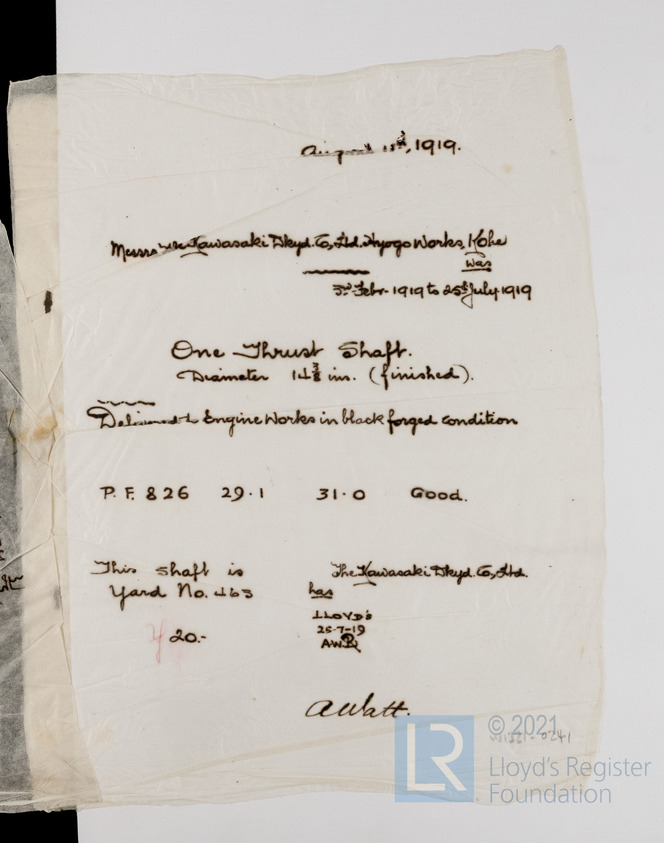 August 1919.
Messrs Kawasaki Dkyd. Co, Ltd. Hyogo Works, Kobe
was
3rd Febr. 1919 to 25th July 1919
One Thrust Shaft.
Diameter 14 3/8 ins. (finished).
Delivered Engine Works in black forged condition
P.F. 826 29.1 31.0 Good.
This shaft is
Yard No. 463
The Kawasaki Dkyd. Co, Ltd.
has
LLOYD'S
25-7-19
¥20.-
A Watt.
© 2021
LR
Lloyd's Register
Foundation